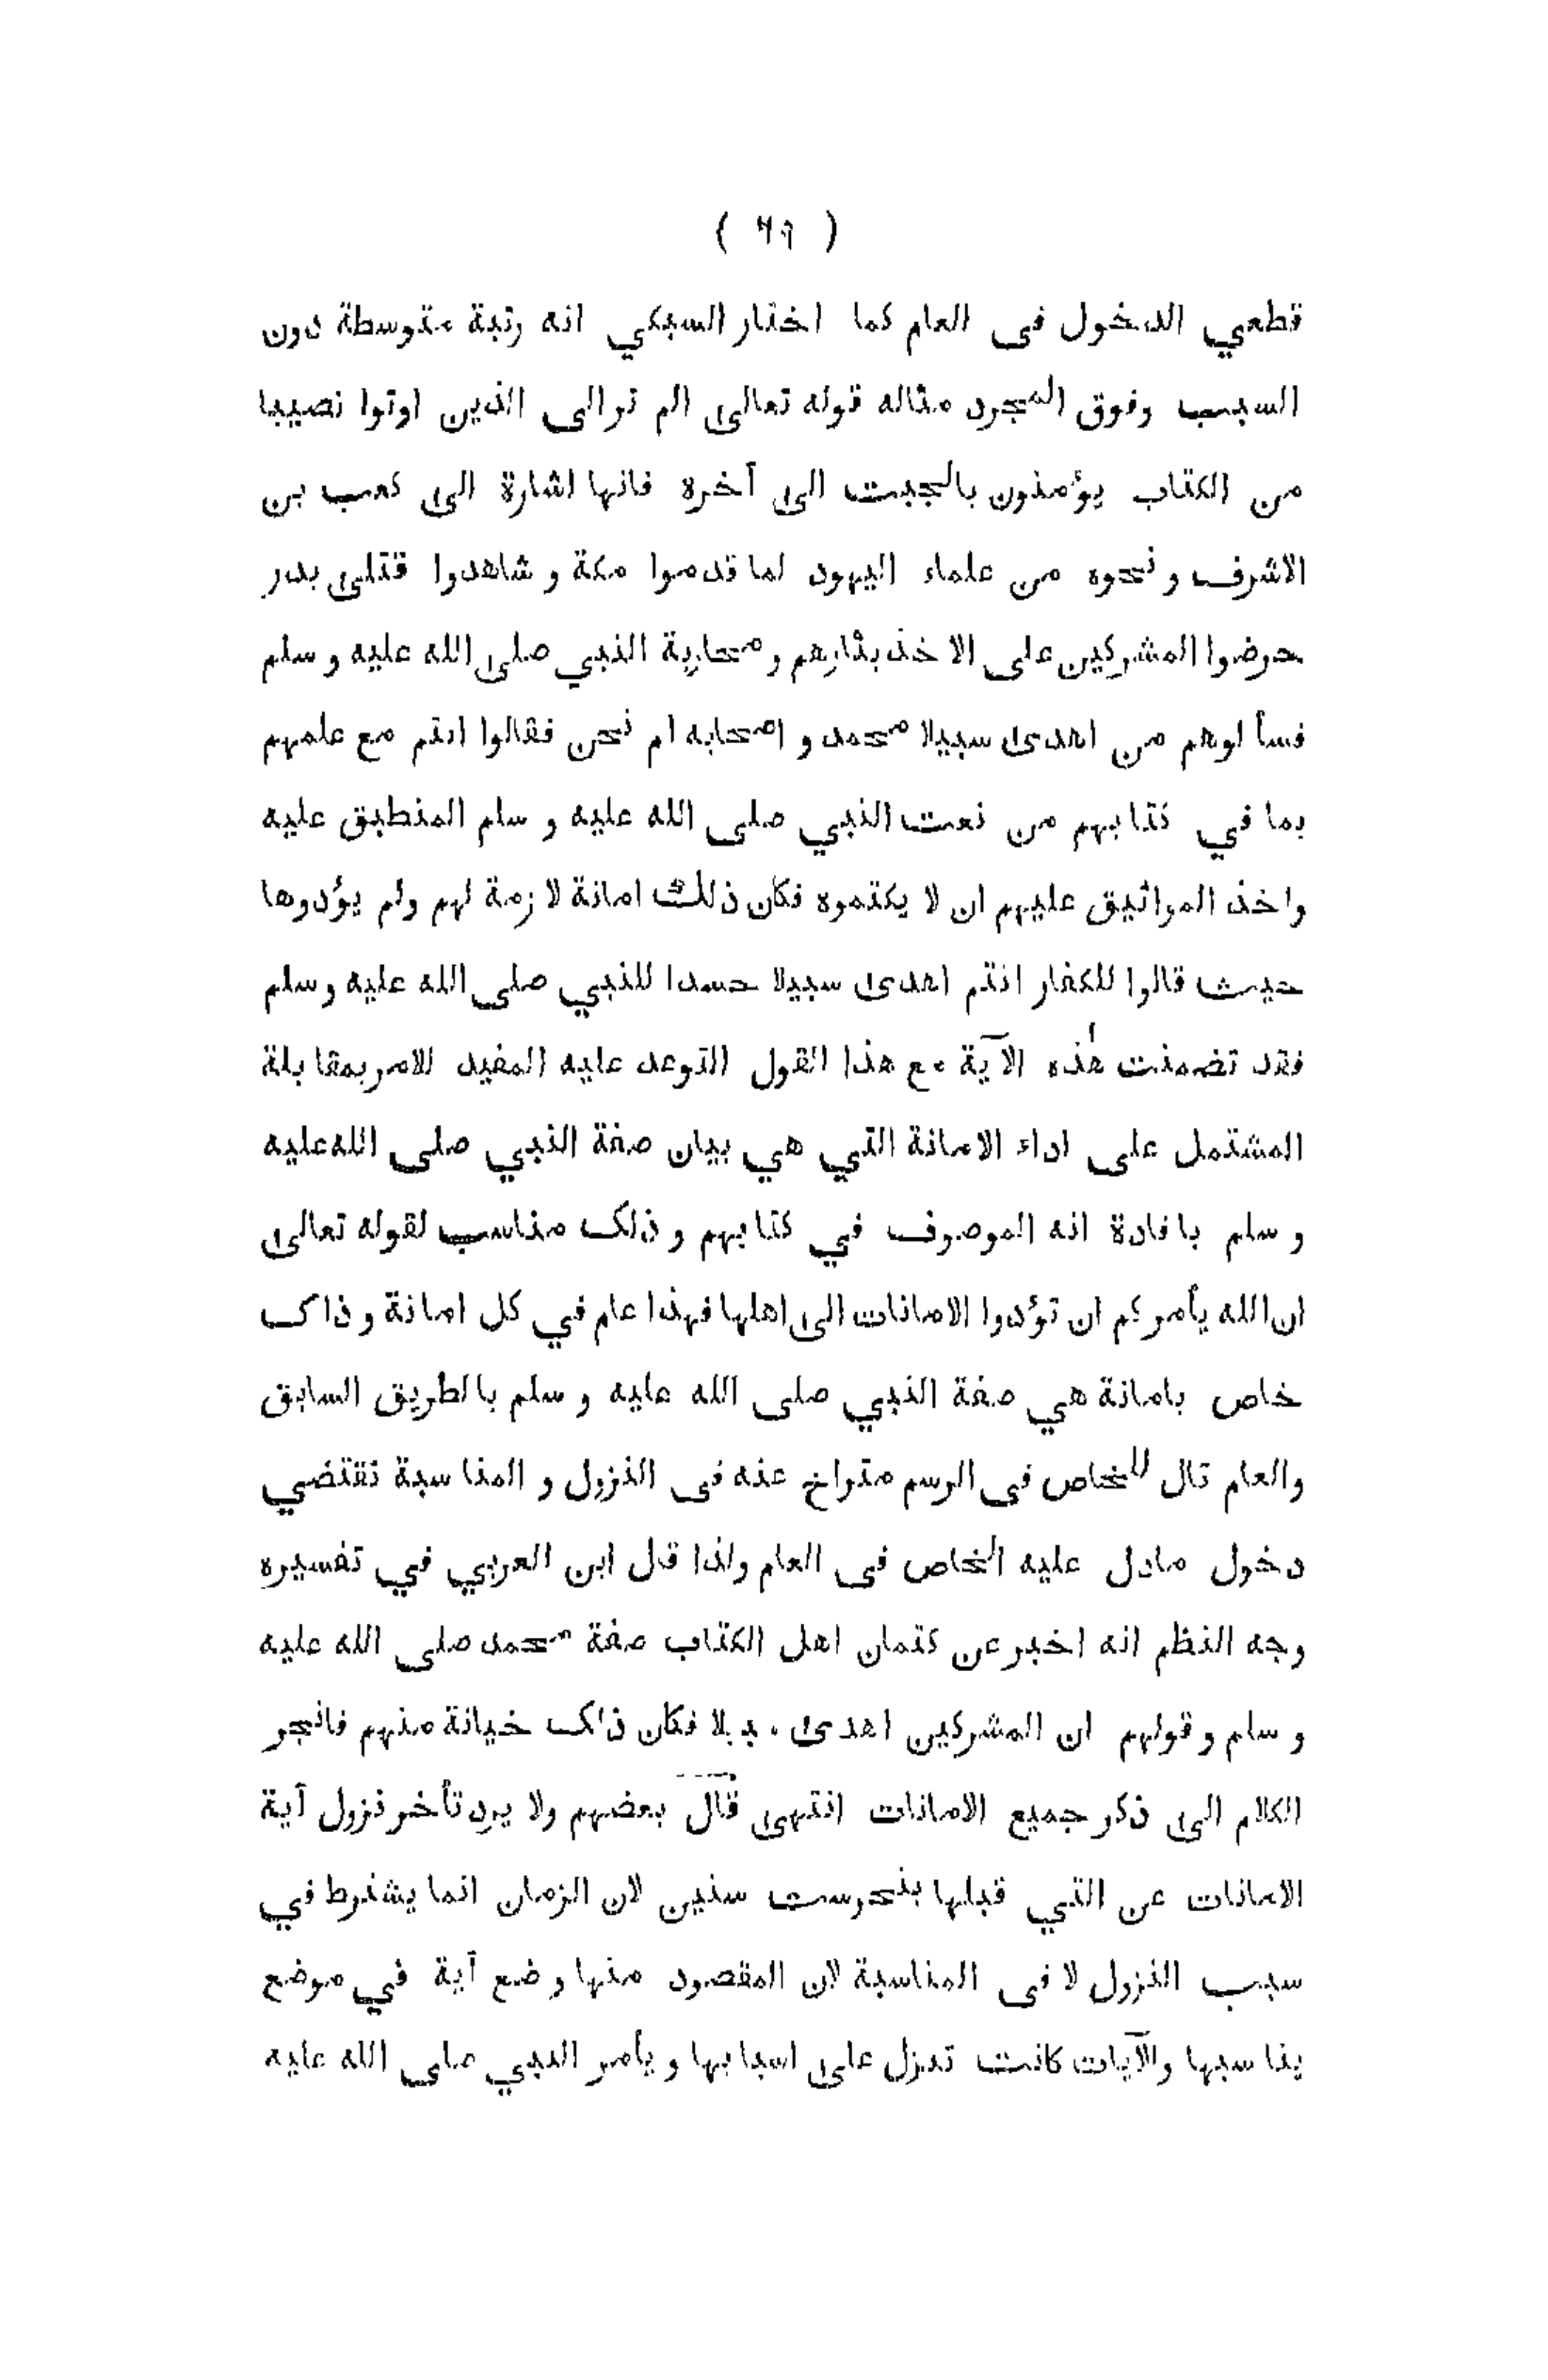 ( ٦٩ )
قطعي الدخول فى العام كما اختار السبكي انه رتبة متوسطة دون
السبب وفوق المجرد مثاله قوله تعالى الم ترالى الذين اوتوا نصيبا
من الكتاب يؤمنون بالجبت الى آخره فانها اشارة الى كعب بن
الاشرف و نحوه من علماء اليهود لما قدموا مكة و شاهدوا قتلى بدر
حرضوا المشركين على الاخذ بثارهم و محاربة النبي صلى الله عليه و سلم
فسألوهم من اهدى سبيلا محمد و اصحابه ام نحن فقالوا انتم مع علمهم
بما في كتابهم من نعت النبي صلى الله عليه و سلم المنطبق عليه
واخذ المواثيق عليهم ان لا يكتموه فكان ذلك امانة لازمة لهم ولم يؤدوها
حيث قالوا للكفار انتم اهدى سبيلا حسدا للنبي صلى الله عليه وسلم
فقد تضمنت هٰذه الآية مع هذا القول التوعد عليه المفيد للامر بمقابلة
المشتمل على اداء الامانة التي هي بيان صفة النبي صلى الله عليه
و سلم بافادة انه الموصوف في كتابهم و ذلك مناسب لقوله تعالى
ان الله يأمركم ان تؤدوا الامانات الى اهلها فهذا عام في كل امانة و ذاك
خاص بامانة هي صفة النبي صلى الله عليه و سلم بالطريق السابق
والعام تال للخاص فى الرسم متراخ عنه فى النزول و المناسبة تقتضي
دخول مادل عليه الخاص فى العام ولذا قال ابن العربي في تفسيره
وجه النظم انه اخبر عن كتمان اهل الكتاب صفة محمد صلى الله عليه
و سلم و قولهم ان المشركين اهدى سبيلا فكان ذلك خيانة منهم فانجر
الكلام الى ذكر جميع الامانات انتهى قال بعضهم ولا يرد تأخر نزول آية
الامانات عن التي قبلها بنحوست سنين لان الزمان انما يشترط في
سبب النزول لا فى المناسبة لان المقصود منها وضع آية في موضع
يناسبها والآيات كانت تنزل على اسبابها و يأمر النبي صلى الله عليه